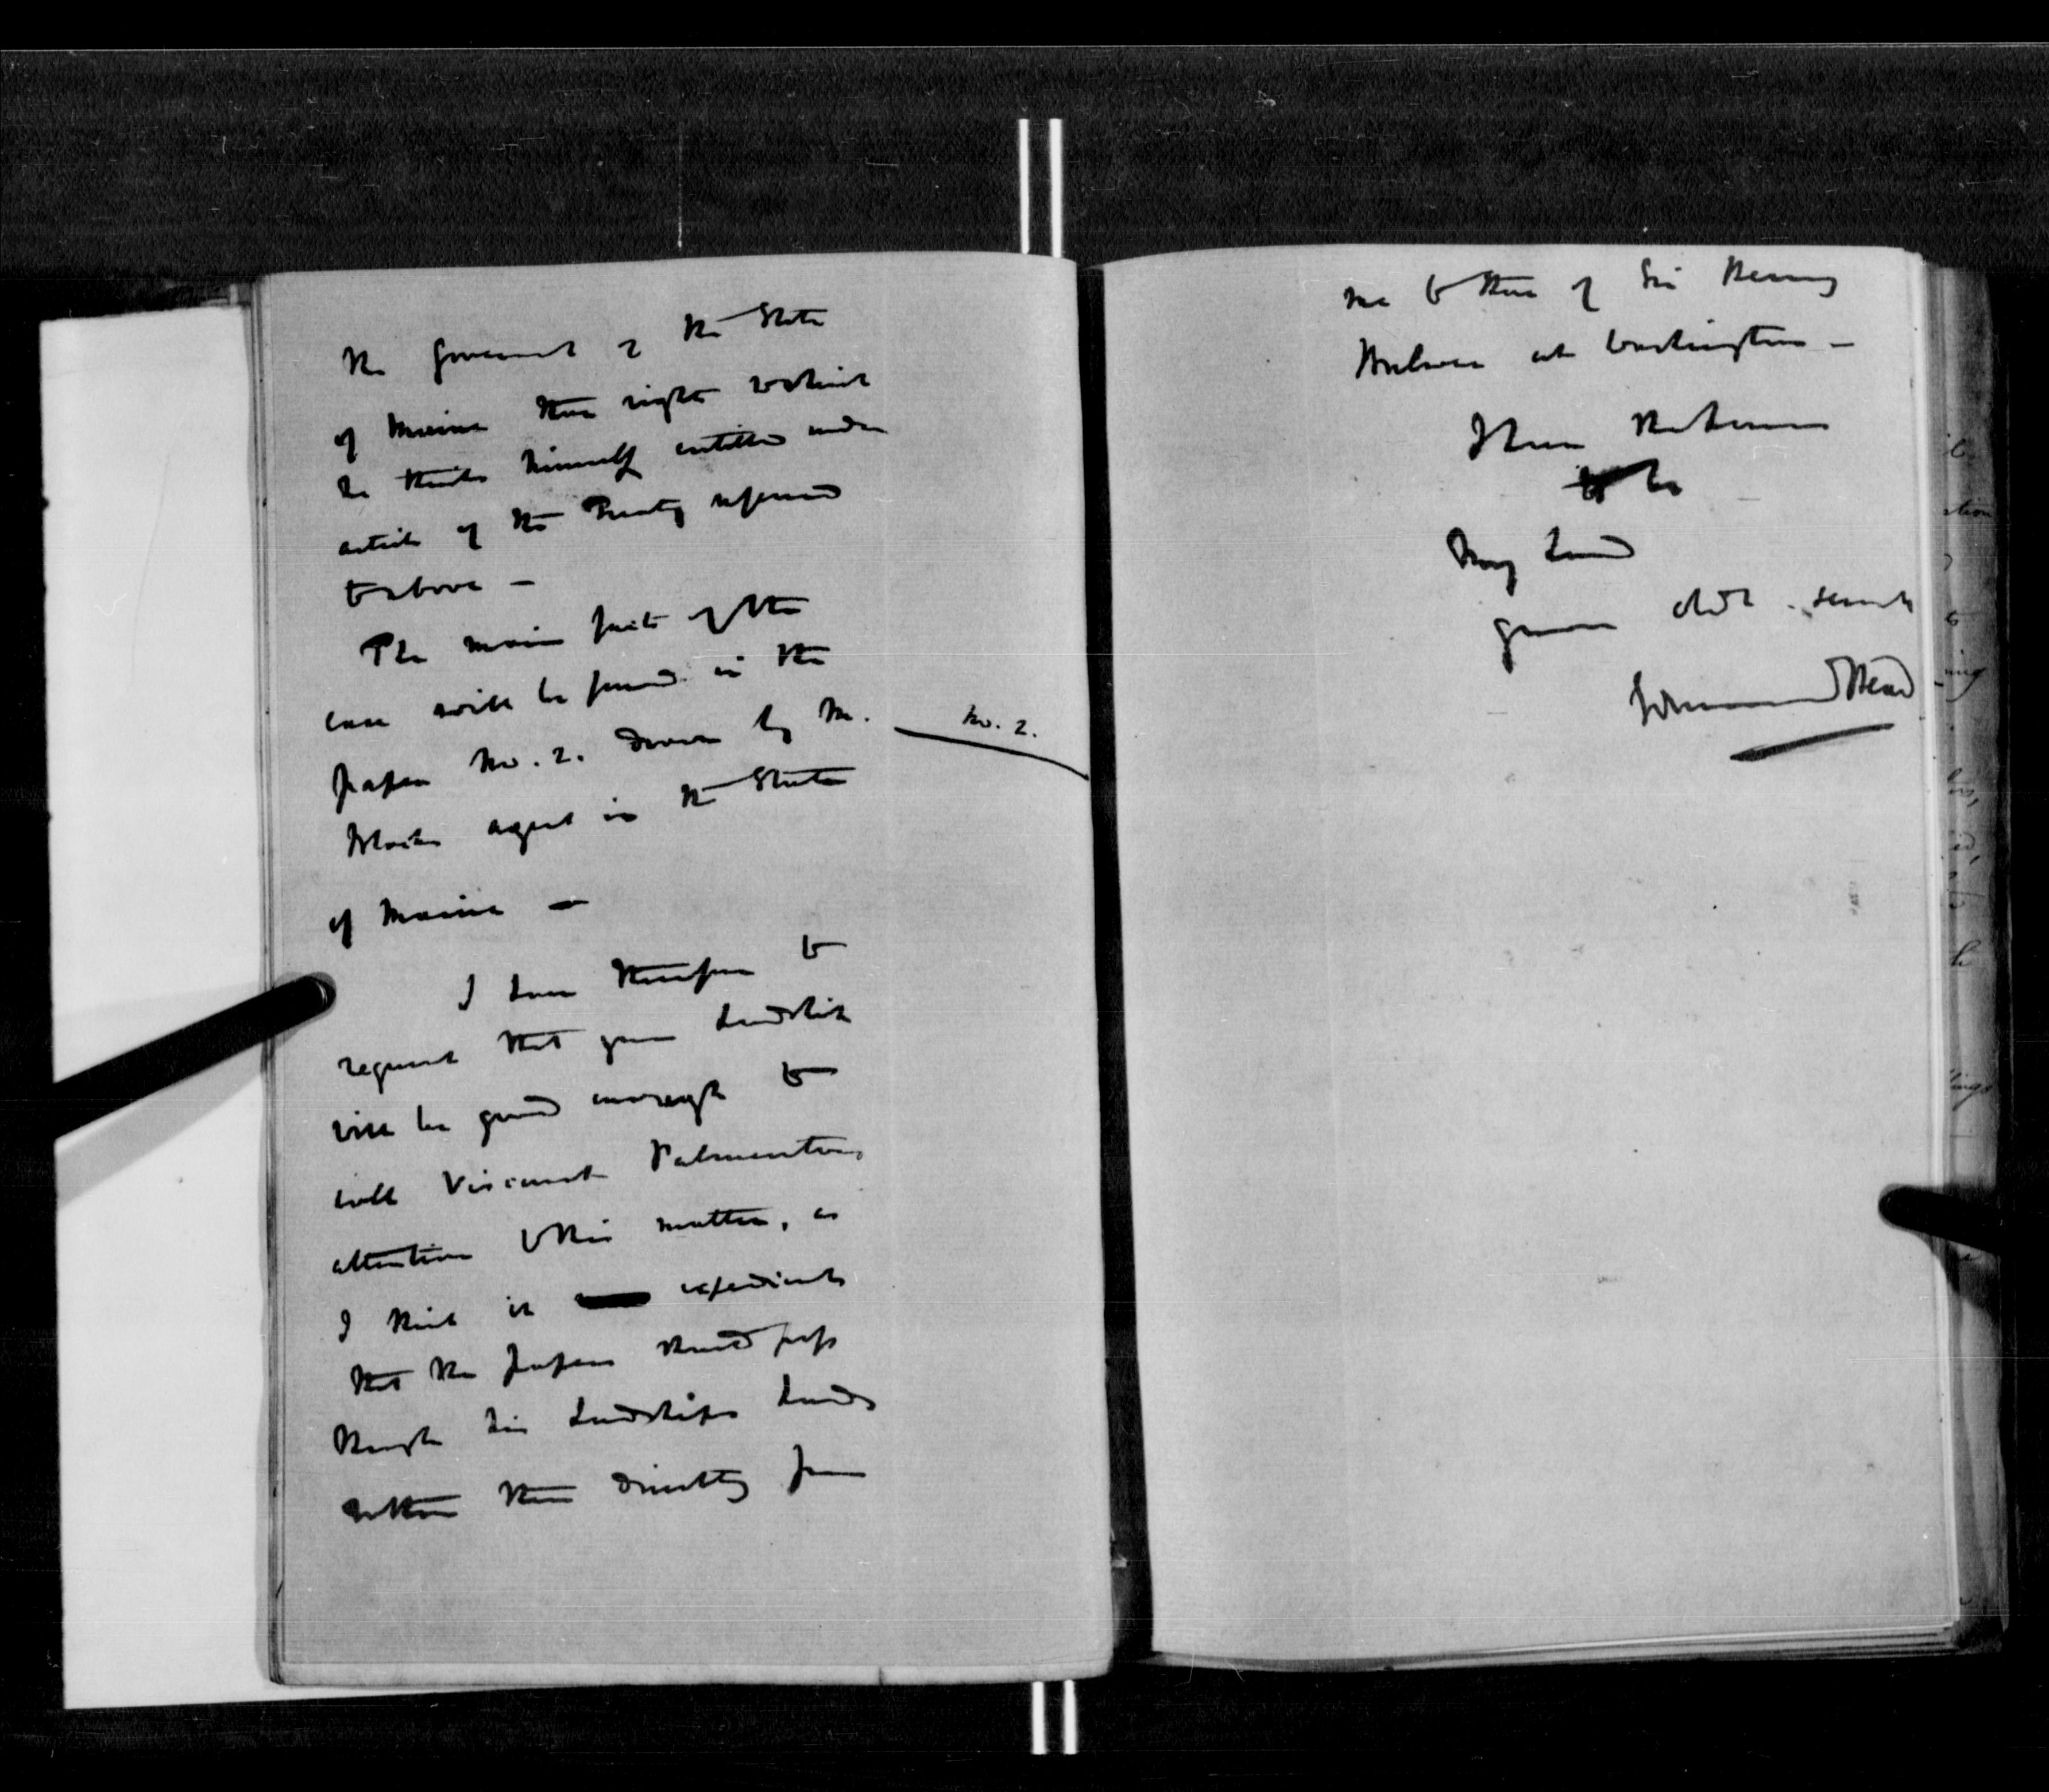 the Government of the State
of Maine those rights to which
he thinks himself entitled under
article of the Treaty referred
to above —
The main facts of the
case will be found in the
paper No. 2. drawn by Mr.
No. 2.
agent in the State
of Maine —
I have therefore to
request that your Lordship
will be good enough to
call Viscount Palmerston's
attention to this matter, as
I think it expedient
that the papers should pass
through his Lordships hands
rather than directly from
me to those of Sir Henry
Bulwer at Washington —
I have the honour
to be
My Lord
your obdt. servt
Edmund Head